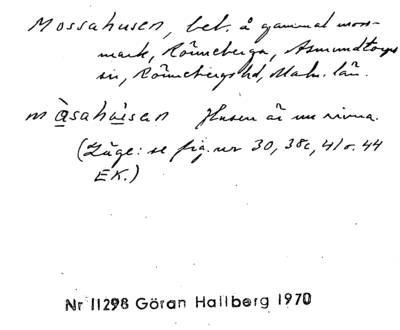 Mossahusen, bet. å gammal moss-
mark, Rönneberga, Asmundtorps
sn, Rönnebergs hd, Malm. län.
mȁsahu̱sen Husen är nu rivna.
(Läge: se fig. nr 30, 38c, 41 o. 44
EK.)
Nr 11298 Göran Hallberg 1970